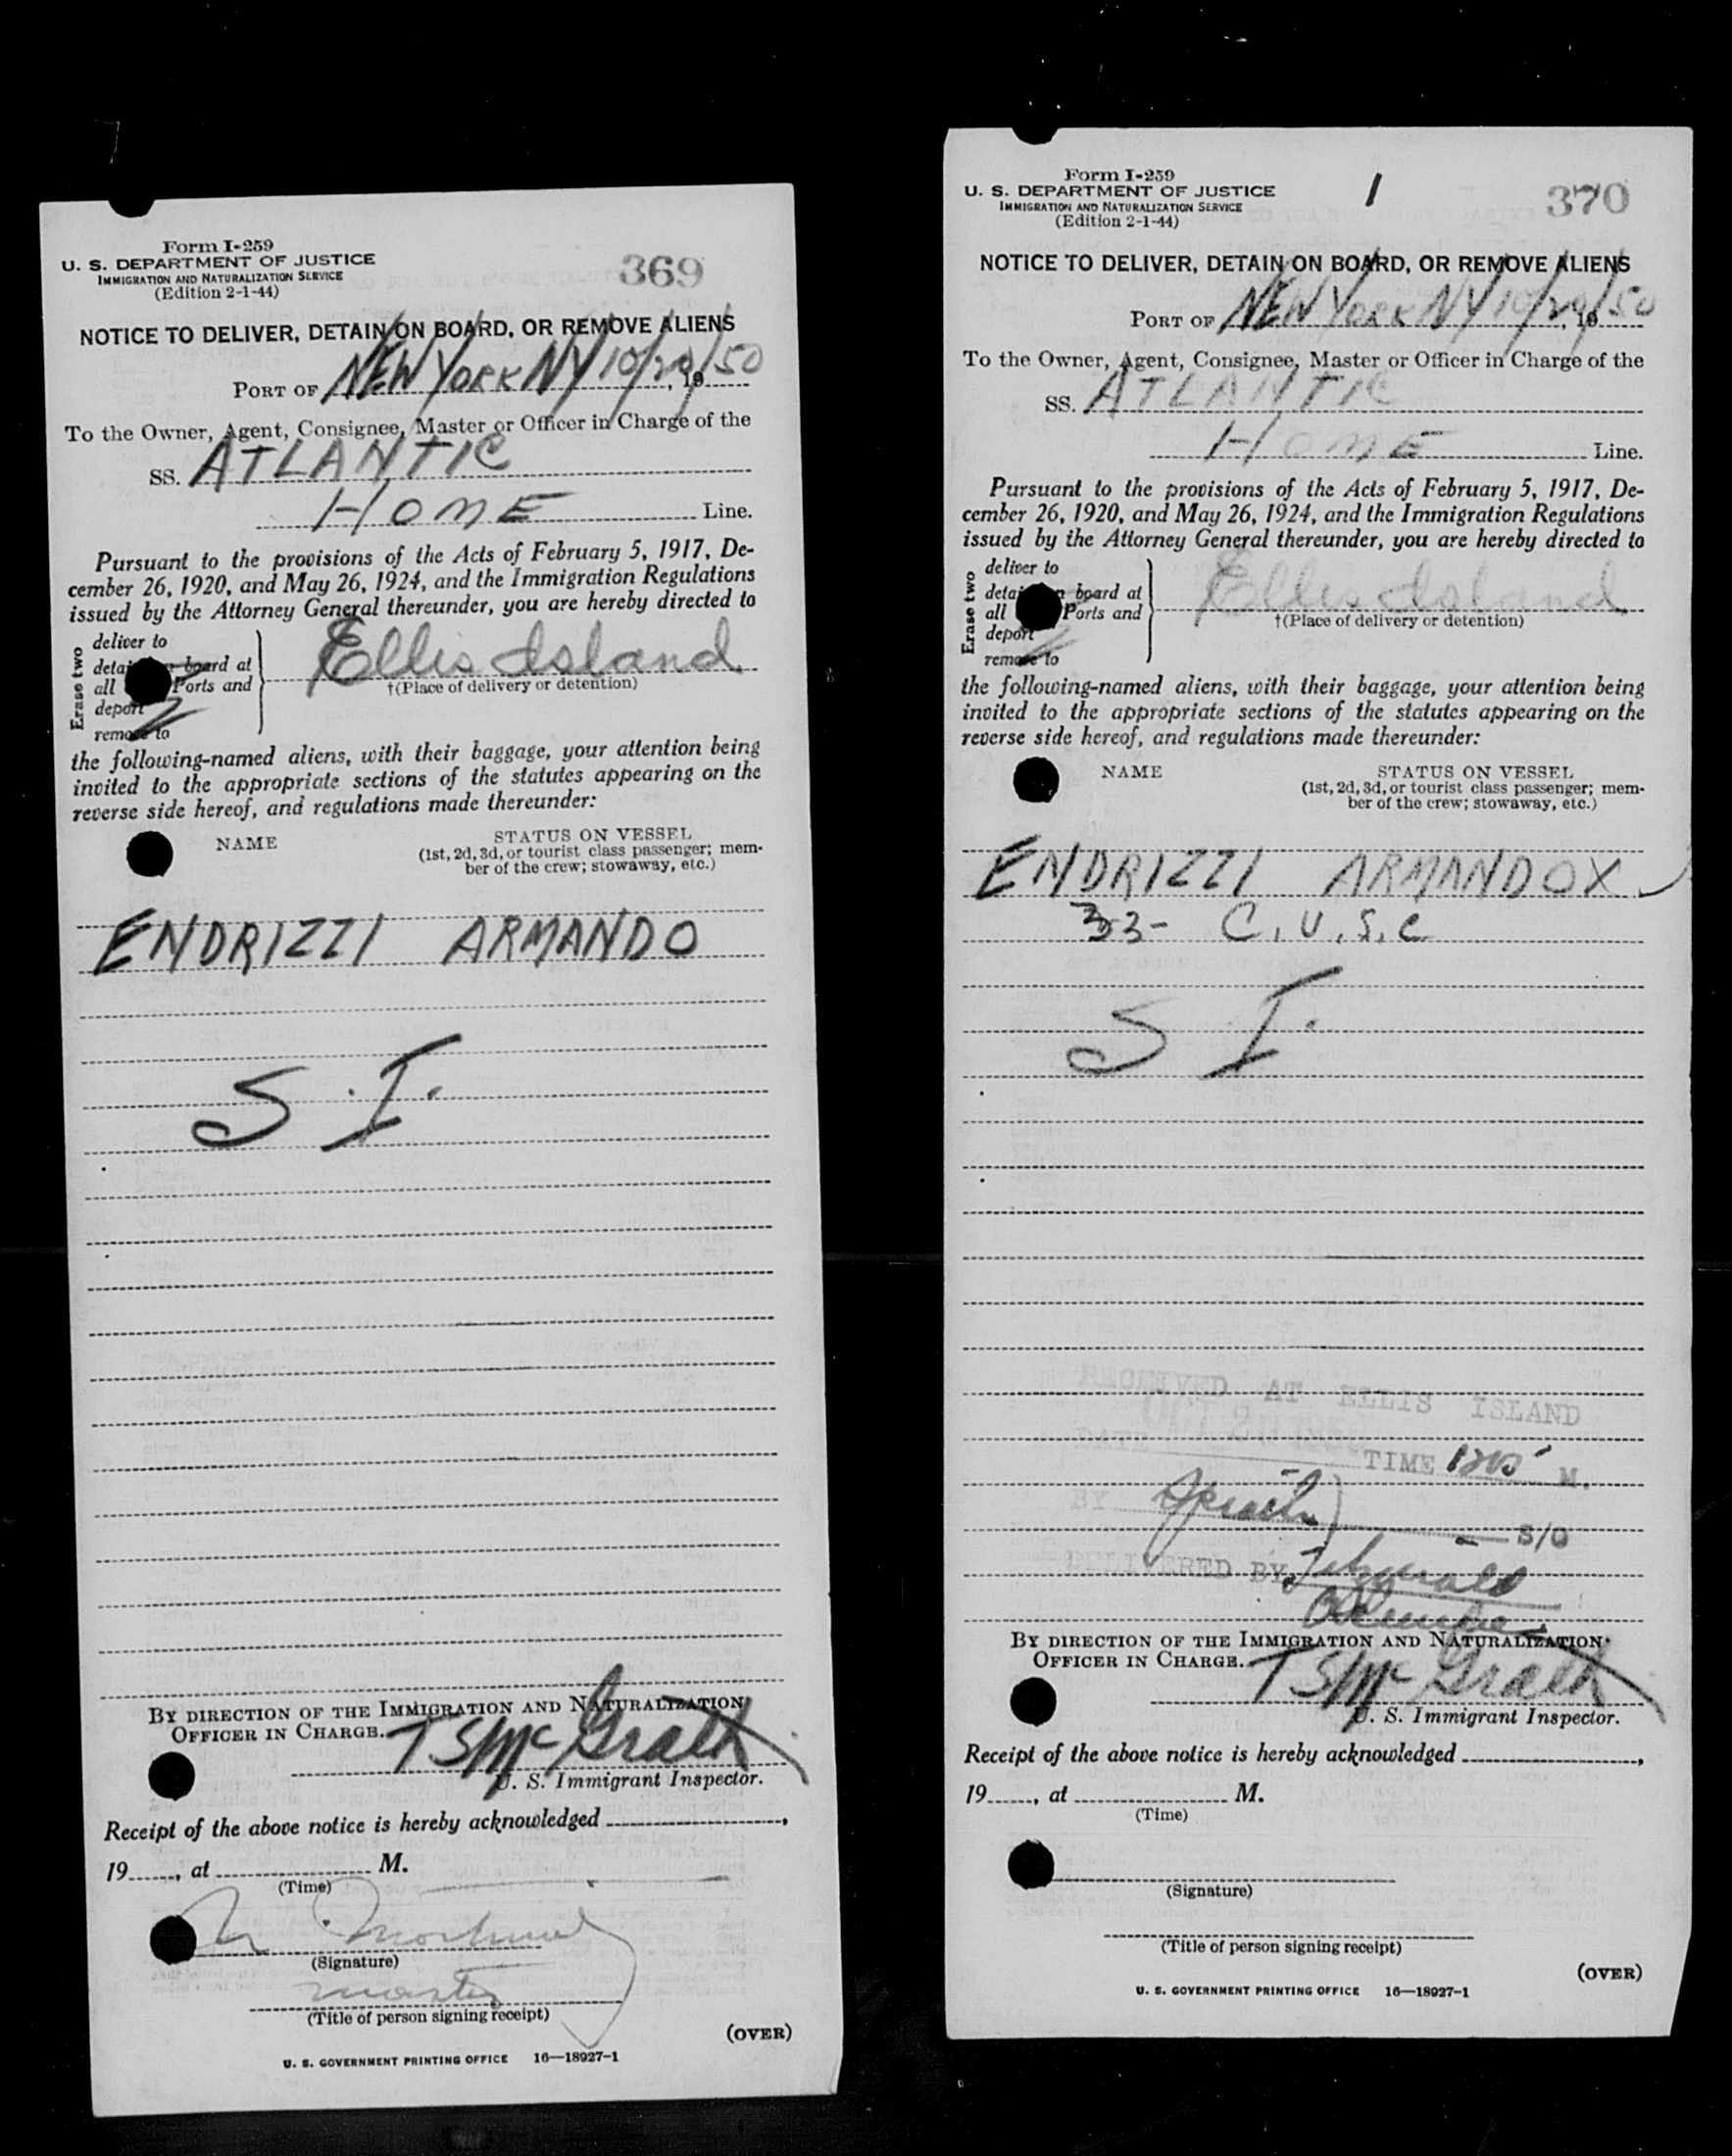 Form I-259
U. S. DEPARTMENT OF JUSTICE
IMMIGRATION AND NATURALIZATION SERVICE
(Edition 2-1-44)
369
NOTICE TO DELIVER, DETAIN ON BOARD, OR REMOVE ALIENS
PORT OF NEW YORK NY 10/20/50, 19
To the Owner, Agent, Consignee, Master or Officer in Charge of the
SS. ATLANTIC
HOME Line.
Pursuant to the provisions of the Acts of February 5, 1917, De-
cember 26, 1920, and May 26, 1924, and the Immigration Regulations
issued by the Attorney General thereunder, you are hereby directed to
Erase two
deliver to
detai board at
all Ports and
deport
remove to
Ellis Island
†(Place of delivery or detention)
the following-named aliens, with their baggage, your attention being
invited to the appropriate sections of the statutes appearing on the
reverse side hereof, and regulations made thereunder:
NAME
STATUS ON VESSEL
(1st, 2d, 3d, or tourist class passenger; mem-
ber of the crew; stowaway, etc.)
ENDRIZZI ARMANDO
S.I.
BY DIRECTION OF THE IMMIGRATION AND NATURALIZATION
OFFICER IN CHARGE.
T S McGrath
U. S. Immigrant Inspector.
Receipt of the above notice is hereby acknowledged ,
19 , at M.
(Time)
(Signature)
master
(Title of person signing receipt)
(OVER)
U. S. GOVERNMENT PRINTING OFFICE 16—18927-1
Form I-259
U. S. DEPARTMENT OF JUSTICE
IMMIGRATION AND NATURALIZATION SERVICE
(Edition 2-1-44)
1
370
NOTICE TO DELIVER, DETAIN ON BOARD, OR REMOVE ALIENS
PORT OF NEW YORK NY 10/20/50, 19
To the Owner, Agent, Consignee, Master or Officer in Charge of the
SS. ATLANTIC
HOME Line.
Pursuant to the provisions of the Acts of February 5, 1917, De-
cember 26, 1920, and May 26, 1924, and the Immigration Regulations
issued by the Attorney General thereunder, you are hereby directed to
Erase two
deliver to
detai board at
all Ports and
deport
remove to
Ellis Island
†(Place of delivery or detention)
the following-named aliens, with their baggage, your attention being
invited to the appropriate sections of the statutes appearing on the
reverse side hereof, and regulations made thereunder:
NAME
STATUS ON VESSEL
(1st, 2d, 3d, or tourist class passenger; mem-
ber of the crew; stowaway, etc.)
ENDRIZZI ARMANDO X
33- C.U.S.C
S I.
RECEIVED AT ELLIS ISLAND
DATE TIME 1205 M.
BY S/O
DELIVERED BY Fitzgerald
BY DIRECTION OF THE IMMIGRATION AND NATURALIZATION
OFFICER IN CHARGE.
T S McGrath
U. S. Immigrant Inspector.
Receipt of the above notice is hereby acknowledged ,
19 , at M.
(Time)
(Signature)
(Title of person signing receipt)
(OVER)
U. S. GOVERNMENT PRINTING OFFICE 16—18927-1